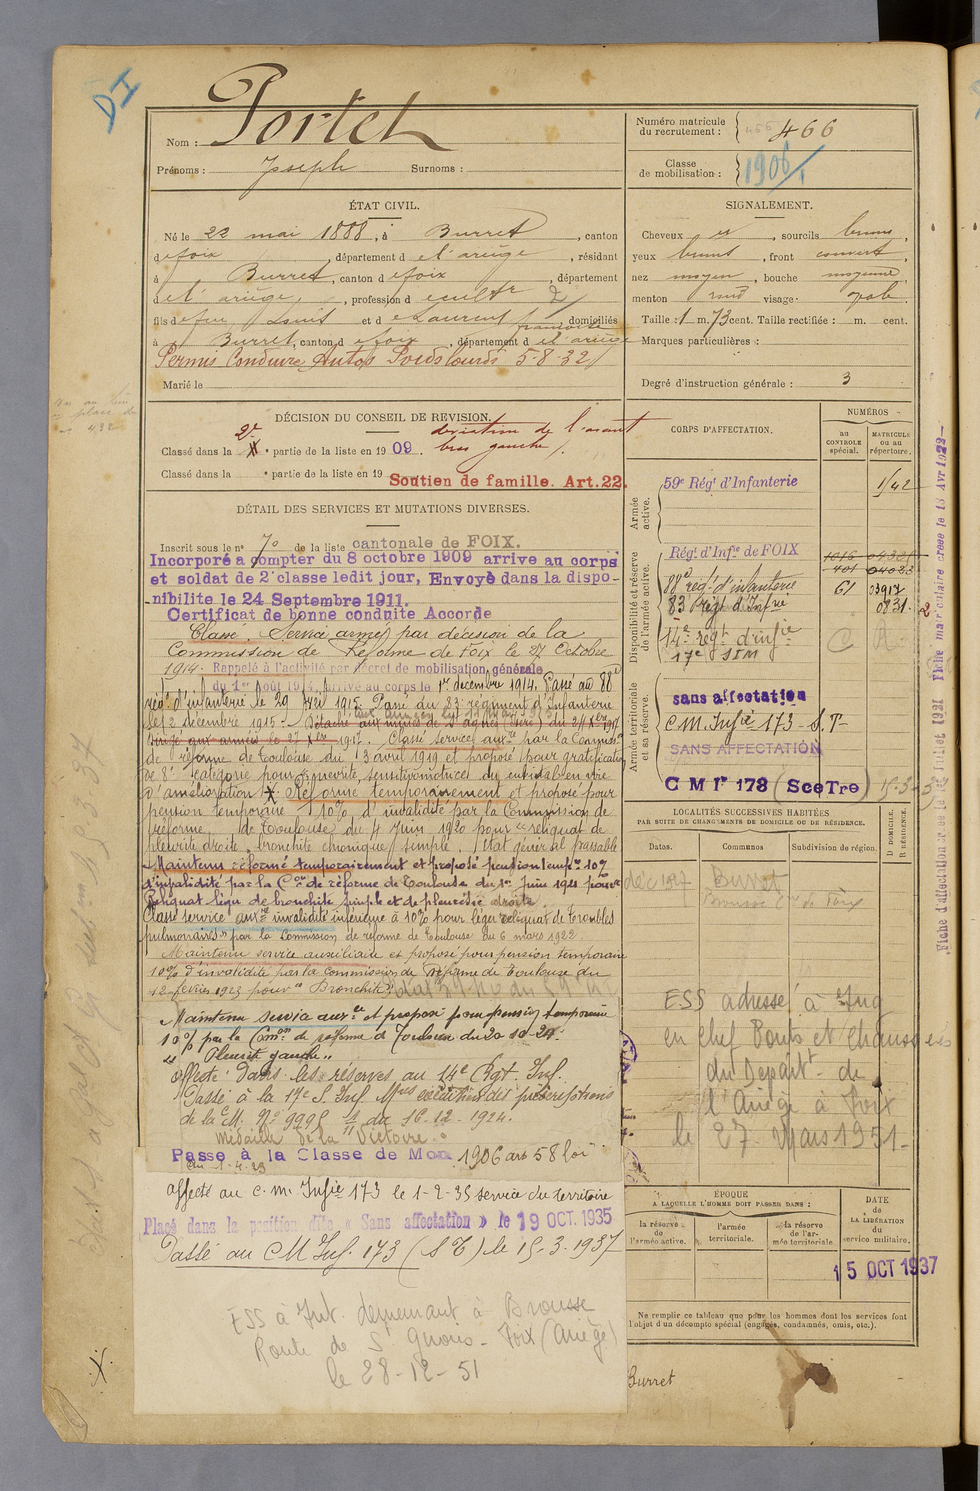 DI
Nom : Portet
Prénoms : Joseph Surnoms :
Numéro matricule du recrutement : 466
Classe de mobilisation : 1906
ÉTAT CIVIL.
Né le 22 mai 1888, à Burret, canton
de foix, département de l'ariège, résidant
à Burret, canton de foix, département
de l'ariège, profession de cultr
fils de feu Louis et de Laurent françoise, domiciliés
à Burret, canton de foix, département de l'ariège
Permis Conduire Autos Poids lourds 5-8-32
Marié le
SIGNALEMENT.
Cheveux et, sourcils bruns,
yeux bruns, front couvert,
nez moyen, bouche moyenne,
menton rond visage : ovale
Taille : 1 m. 73 cent. Taille rectifiée : m. cent.
Marques particulières :
Degré d'instruction générale : 3
DÉCISION DU CONSEIL DE REVISION.
Classé dans la 2e partie de la liste en 1909. déviation de l'avant bras gauche
Classé dans la partie de la liste en 19
Soutien de famille. Art. 22.
DÉTAIL DES SERVICES ET MUTATIONS DIVERSES.
Inscrit sous le n° 70 de la liste cantonale de FOIX.
Incorporé à compter du 8 octobre 1909 arrive au corps
et soldat de 2e classe ledit jour, Envoyé dans la dispo-
nibilite le 24 Septembre 1911.
Certificat de bonne conduite Accordé
Classé Service armé par décision de la
Commission de Réforme de Foix le 27 Octobre
1914. Rappelé à l'activité par décret de mobilisation générale
du 1er Août 1914, arrivé au corps le 1er decembre 1914. Passé au 88e
rég. d'infanterie le 29 1915. Passé au 83 régiment d'Infanterie
le 2 décembre 1915 -
1917. Classé service auxre par la Commison
de réforme de Toulouse du 3 avril 1919 et proposé pour gratification
de 8e catégorie pour
d'amélioration X. Réformé temporairement et proposé pour
pension temporaire 10% d'invalidité par la Commission de
réforme de Toulouse du 4 Juin 1920 pour reliquat de
pleurite droite, bronchite chronique simple. Etat général passable
Maintenu réformé temporairement et proposé pension temp. 10%
d'invalidité par la Con de réforme de Toulouse du 1er Juin 1921 pour
Reliquat léger de bronchite simple et de pleurésie droite
Classé service auxre invalidité inférieure à 10% pour léger reliquat de troubles
pulmonaires par la Commission de réforme de Toulouse du 6 mars 1922.
Maintenu service auxiliaire et proposé pour pension temporaire
10% d'invalidité par la commission de réforme de Toulouse du
12 février 1923 pour Bronchite
Maintenu service auxre et proposé pour pension temporaire
10% par la Comon de réforme de Toulouse du 20-10-24.
Pleurite gauche
Affecté dans les réserves au 14e Rgt. Inf.
Passé à la 17e S. Inf. Mres exécution des prescriptions
de la C. M. N° 9995 du 16-12-1924.
Médaille de la Victoire.
Passé à la Classe de Mob. 1906 art 58 loi
du 1-4-23
affecté au C. M. Infie 173 le 1-2-35 service du territoire
Placé dans la position dite « Sans affectation » le 19 OCT. 1935
Passé au C M Inf. 173 (S T) le 15-3-1937
ESS à Int. demeurant à Brousse
Route de S. Girons - Foix (Ariège)
le 28-12-51
CORPS D'AFFECTATION.
NUMÉROS
au CONTROLE spécial.
MATRICULE ou au répertoire.
Armée active.
59e Régt d'Infanterie 1/42
Disponibilité et réserve de l'armée active.
Régt d'Infie de FOIX
88e régt d'infanterie 61 03917
83 Régt d'Infie 0831
14e régt d'infie
17e SIM
Armée territoriale et sa réserve.
sans affectation
C M. Infie 173 - S. T-
SANS AFFECTATION
C M I 173 (Sce Tre) 15-3-3
LOCALITÉS SUCCESSIVES HABITÉES
PAR SUITE DE CHANGEMENTS DE DOMICILE OU DE RÉSIDENCE.
Dates. Communes Subdivision de région. D DOMICILE. R RÉSIDENCE.
déc 1927 Burret
Brousse Cne de Foix
ESS adressé à Ing
en Chef Ponts et Chaussées
du Départt de
l'Ariège à Foix
le 27 Mars 1951-
ÉPOQUE
A LAQUELLE L'HOMME DOIT PASSER DANS :
la réserve de l'armée active.
l'armée territoriale.
la réserve de l'armée territoriale.
DATE de LA LIBÉRATION du service militaire.
15 OCT 1937
Ne remplir ce tableau que pour les hommes dont les services font
l'objet d'un décompte spécial (engagés, condamnés, omis, etc.).
Burret